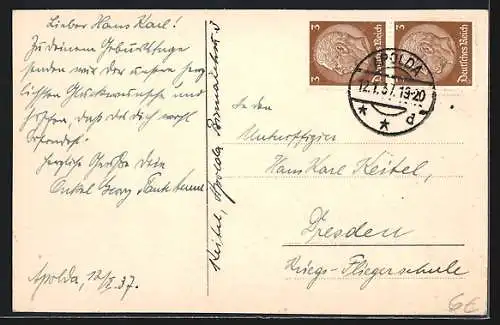 Lieber Hans Karl!
Zu deinem Geburtstage
senden wir dir unsere herz
lichsten Glückwünsche und
hoffen, daß du dich wohl
befindest.
Herzliche Grüße dein
Onkel Georg Tante
Apolda, 12/I. 37.
Keitel, Apolda
3 Deutsches Reich
3 Deutsches Reich
APOLDA
12.1.37.19-20
* * d
An den
Unteroffizier
Hans Karl Keitel,
Dresden
Kriegs-Fliegerschule
6€